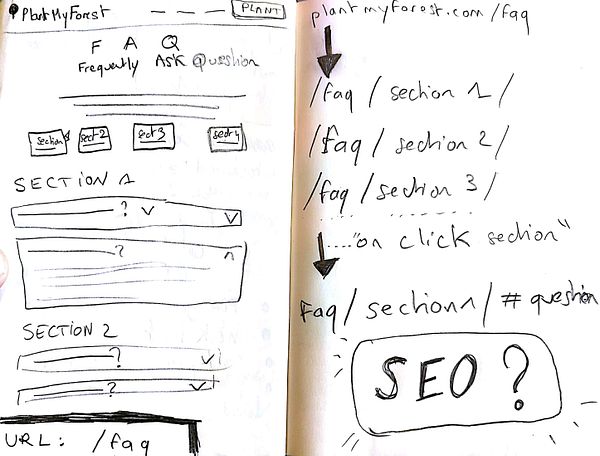 PlantMyForest
PLANT
F A Q
Frequently Ask Question
section 1 sect 2 sect 3 sect 4
SECTION 1
?
?
SECTION 2
?
?
URL: /faq
plantmyforest.com/faq
/faq / section 1 /
/faq / section 2 /
/faq / section 3 /
"on click section"
Faq / section 1 / # question
SEO ?